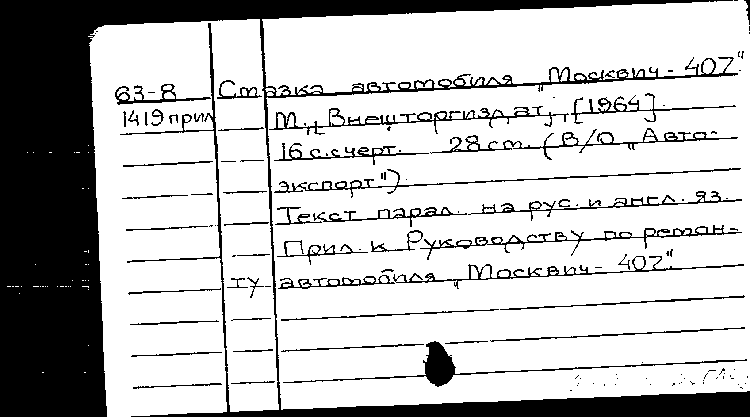 63-8 Смазка автомобиля „Москвич-407".
1419 прил М., „Внешторгиздат", [1964].
16 с. с черт. 28 cm. (В/О „Авто-
экспорт")
Текст парал. на рус. и англ. яз.
Прил. к Руководству по ремон-
ту автомобиля „Москвич-407".